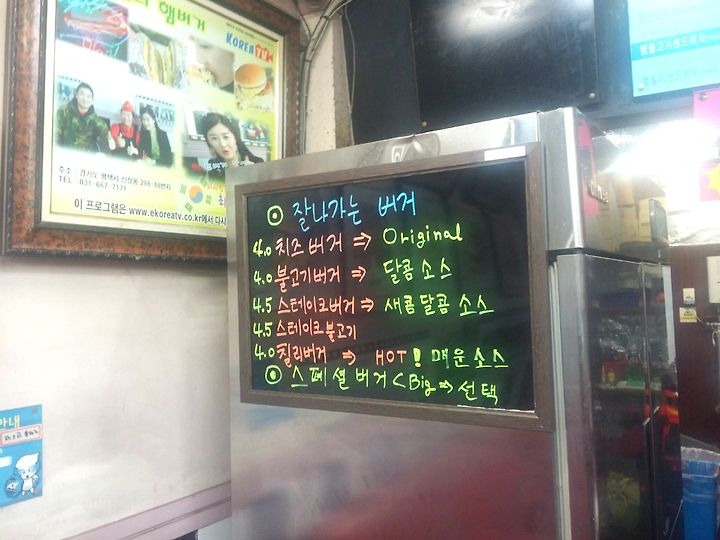 햄버거
KOREA TV
주소 : 경기도 평택시 신장동 296-88번지
TEL : 031-667-7171
이 프로그램은 www.ekoreatv.co.kr에서 다시
⊙ 잘나가는 버거
4.0 치즈버거 ⇒ Original
4.0 불고기버거 ⇒ 달콤소스
4.5 스테이크버거 ⇒ 새콤달콤 소스
4.5 스테이크불고기
4.0 칠리버거 ⇒ HOT! 매운소스
⊙ 스페셜버거 < Big ⇒ 선택
안내